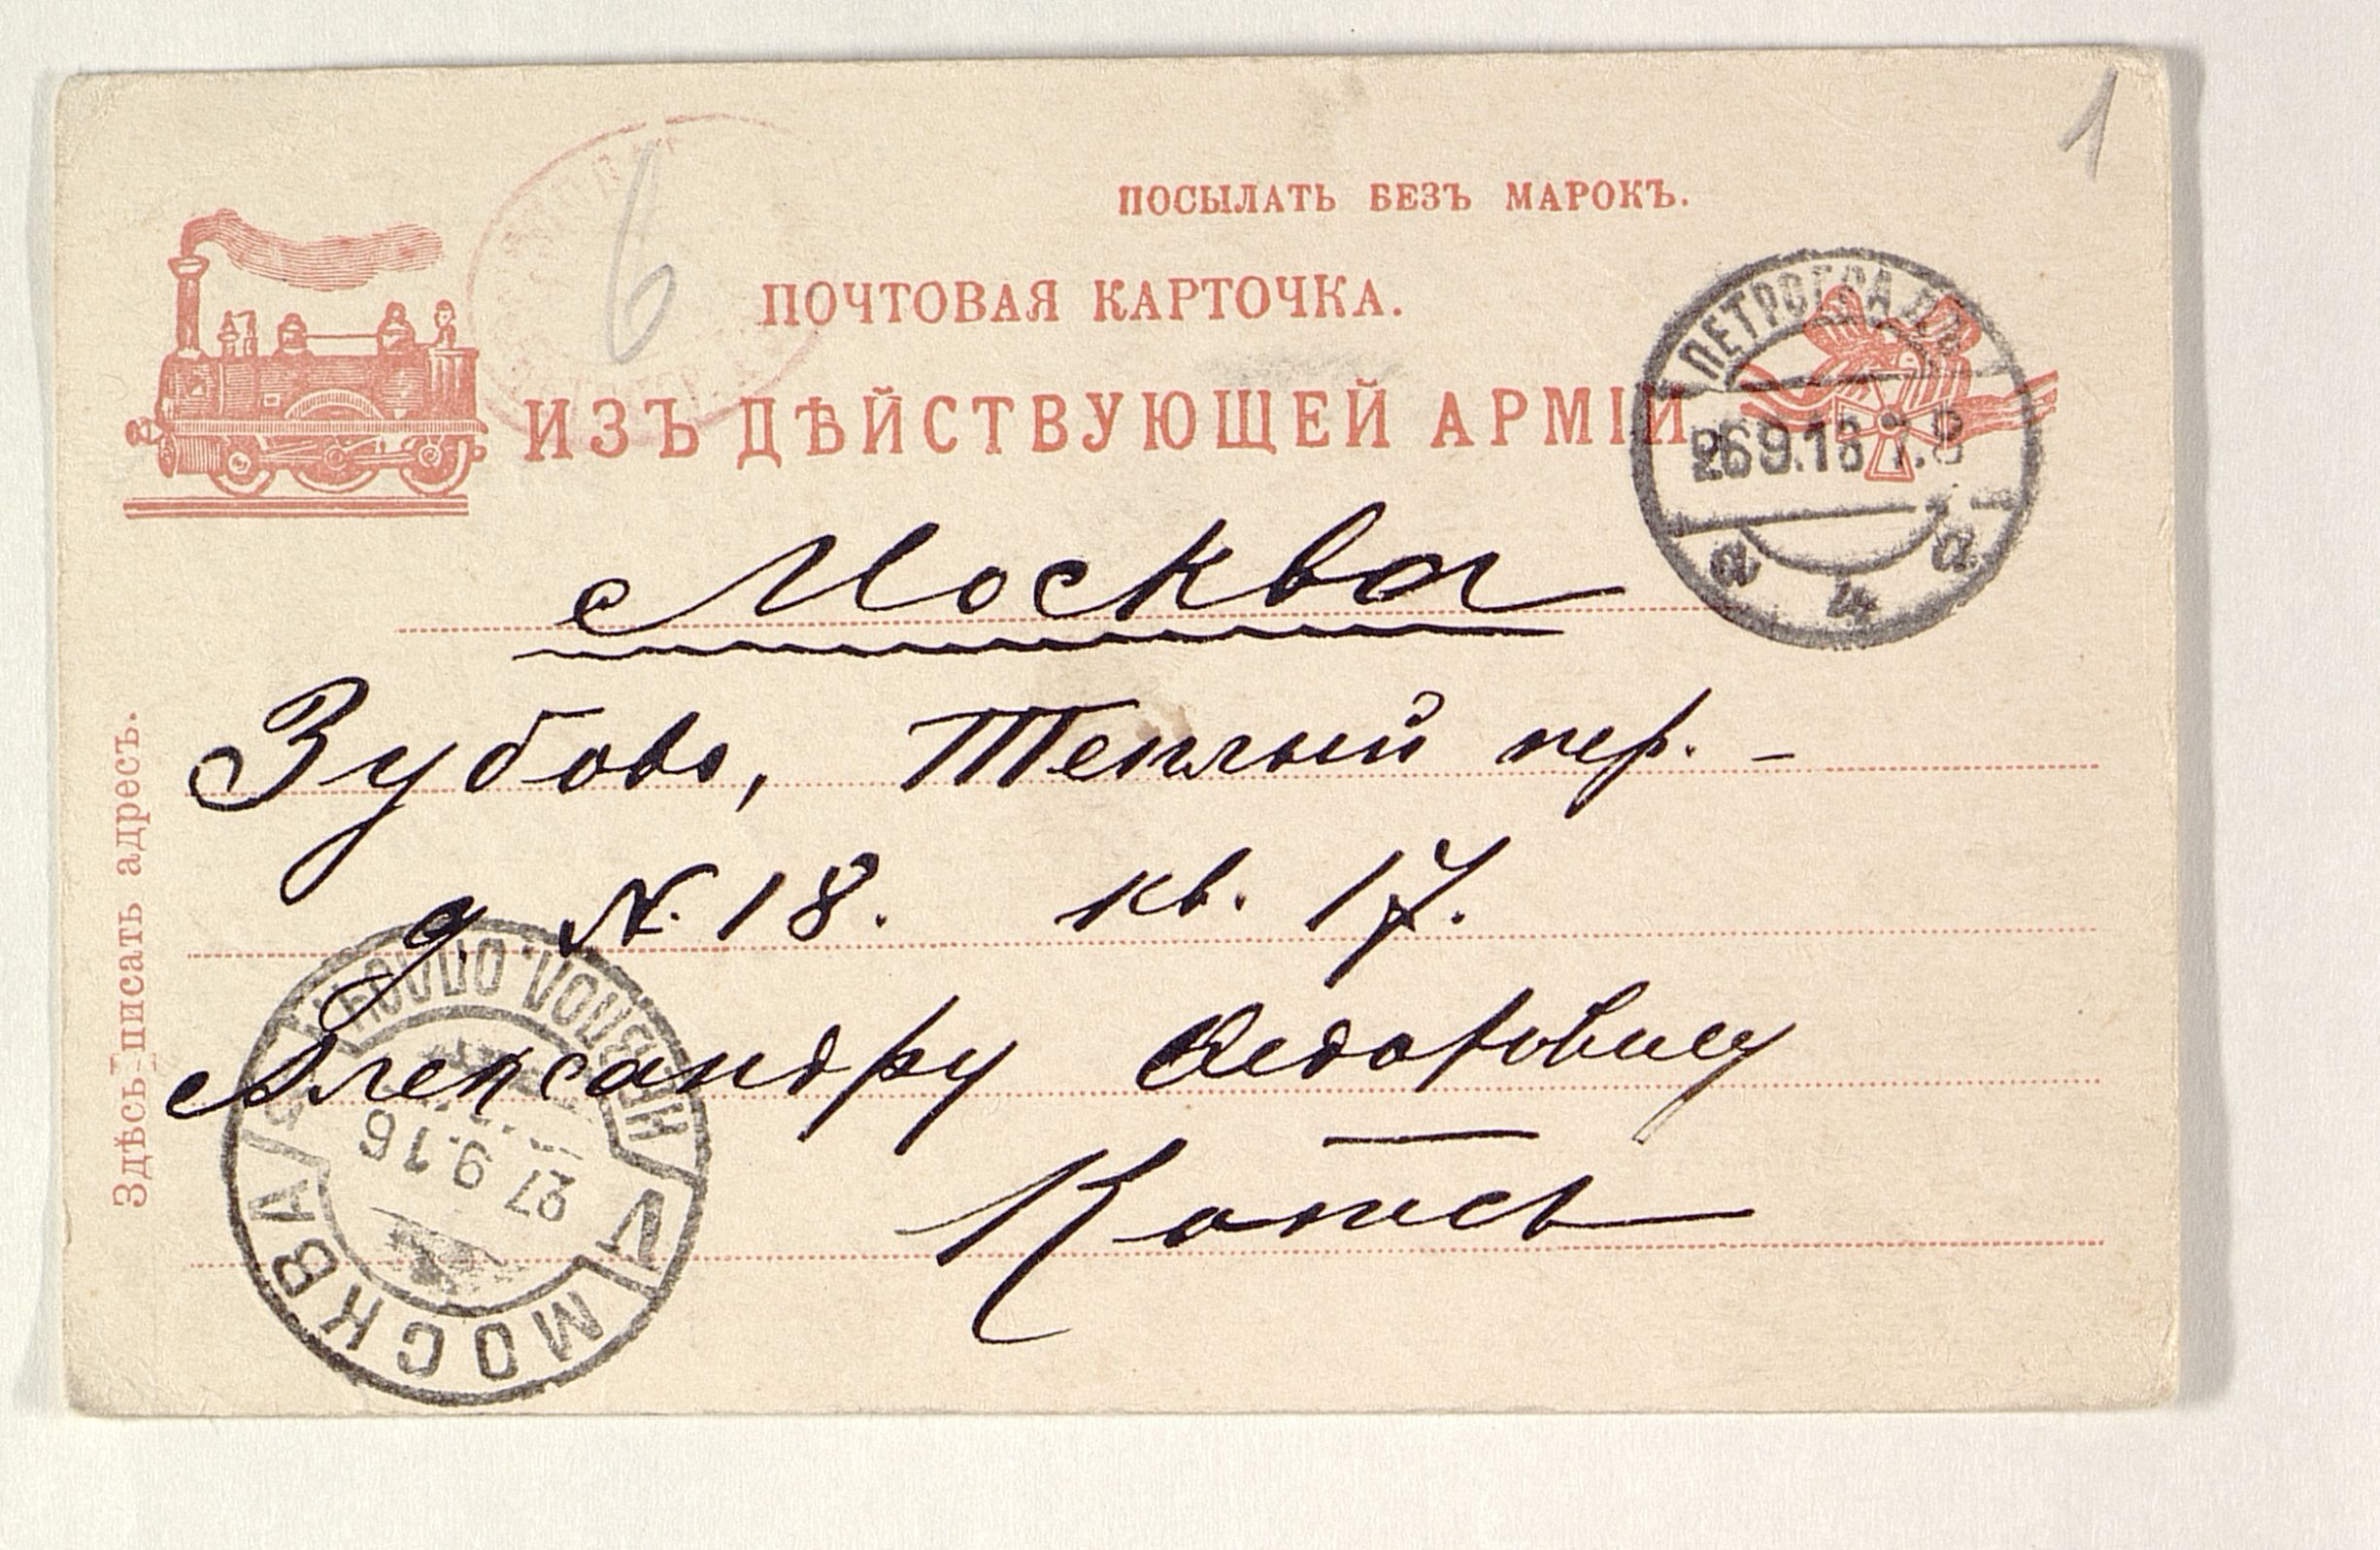 1
6
ПОСЫЛАТЬ БЕЗЪ МАРОКЪ.
ПОЧТОВАЯ КАРТОЧКА.
ИЗЪ ДѢЙСТВУЮЩЕЙ АРМІИ
ПЕТРОГРАДЪ
26 9.16
а 4 а
Москва
Зубово, Теплый пер. –
д N. 18. кв. 17.
Александру
Котсъ
Здѣсь писать адресъ.
27.9.16
V
МОСКВА